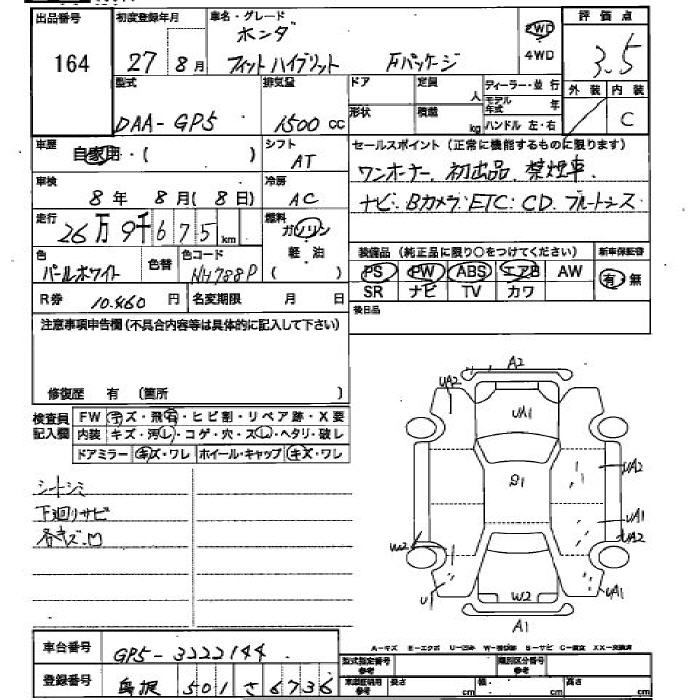 出品番号 初度登録年月 車名・グレード 2WD 4WD 評価点
164 27 8月 ホンダ 3.5
フィットハイブリット Fパッケージ
外装 内装
C
型式 排気量 ドア 定員 人 ディーラー・並行
モデル年式 年
DAA-GP5 1500 cc 形状 積載 kg ハンドル 左・右
車歴 自家用・( ) シフト AT セールスポイント(正常に機能するものに限ります)
ワンオーナー. 初出品. 禁煙車.
車検 8年 8月(8日) 冷房 AC
ナビ. Bカメラ. ETC. CD. ブルートゥース
走行 26万9千675km 燃料 ガソリン 軽・油 ( )
色 パールホワイト 色替 色コード NH788P
装備品(純正品に限り〇をつけてください) 新車保証書
PS PW ABS エアB AW 有・無
SR ナビ TV カワ
R券 10.460円 名変期限 月 日
後日品
注意事項申告欄(不具合内容等は具体的に記入して下さい)
修復歴 有 (箇所 )
検査員記入欄 FW キズ・飛石・ヒビ割・リペア跡・X要
内装 キズ・汚レ・コゲ・穴・スレ・ヘタリ・破レ
ドアミラー キズ・ワレ ホイール・キャップ キズ・ワレ
シートシミ
下廻りサビ
各キズ.凹
A2
UA2
UA1
UA2
S1
UA1
UA2
W2
U1
W2
UA1
A1
A-キズ E-エクボ U-凹み W-補修跡 S-サビ C-腐食 XX-交換済
車台番号 GP5-3222144
型式指定番号 参考 類別区分番号 参考
登録番号 島根 501 さ 6736
車庫証明用 参考 長さ cm 幅 cm 高さ cm